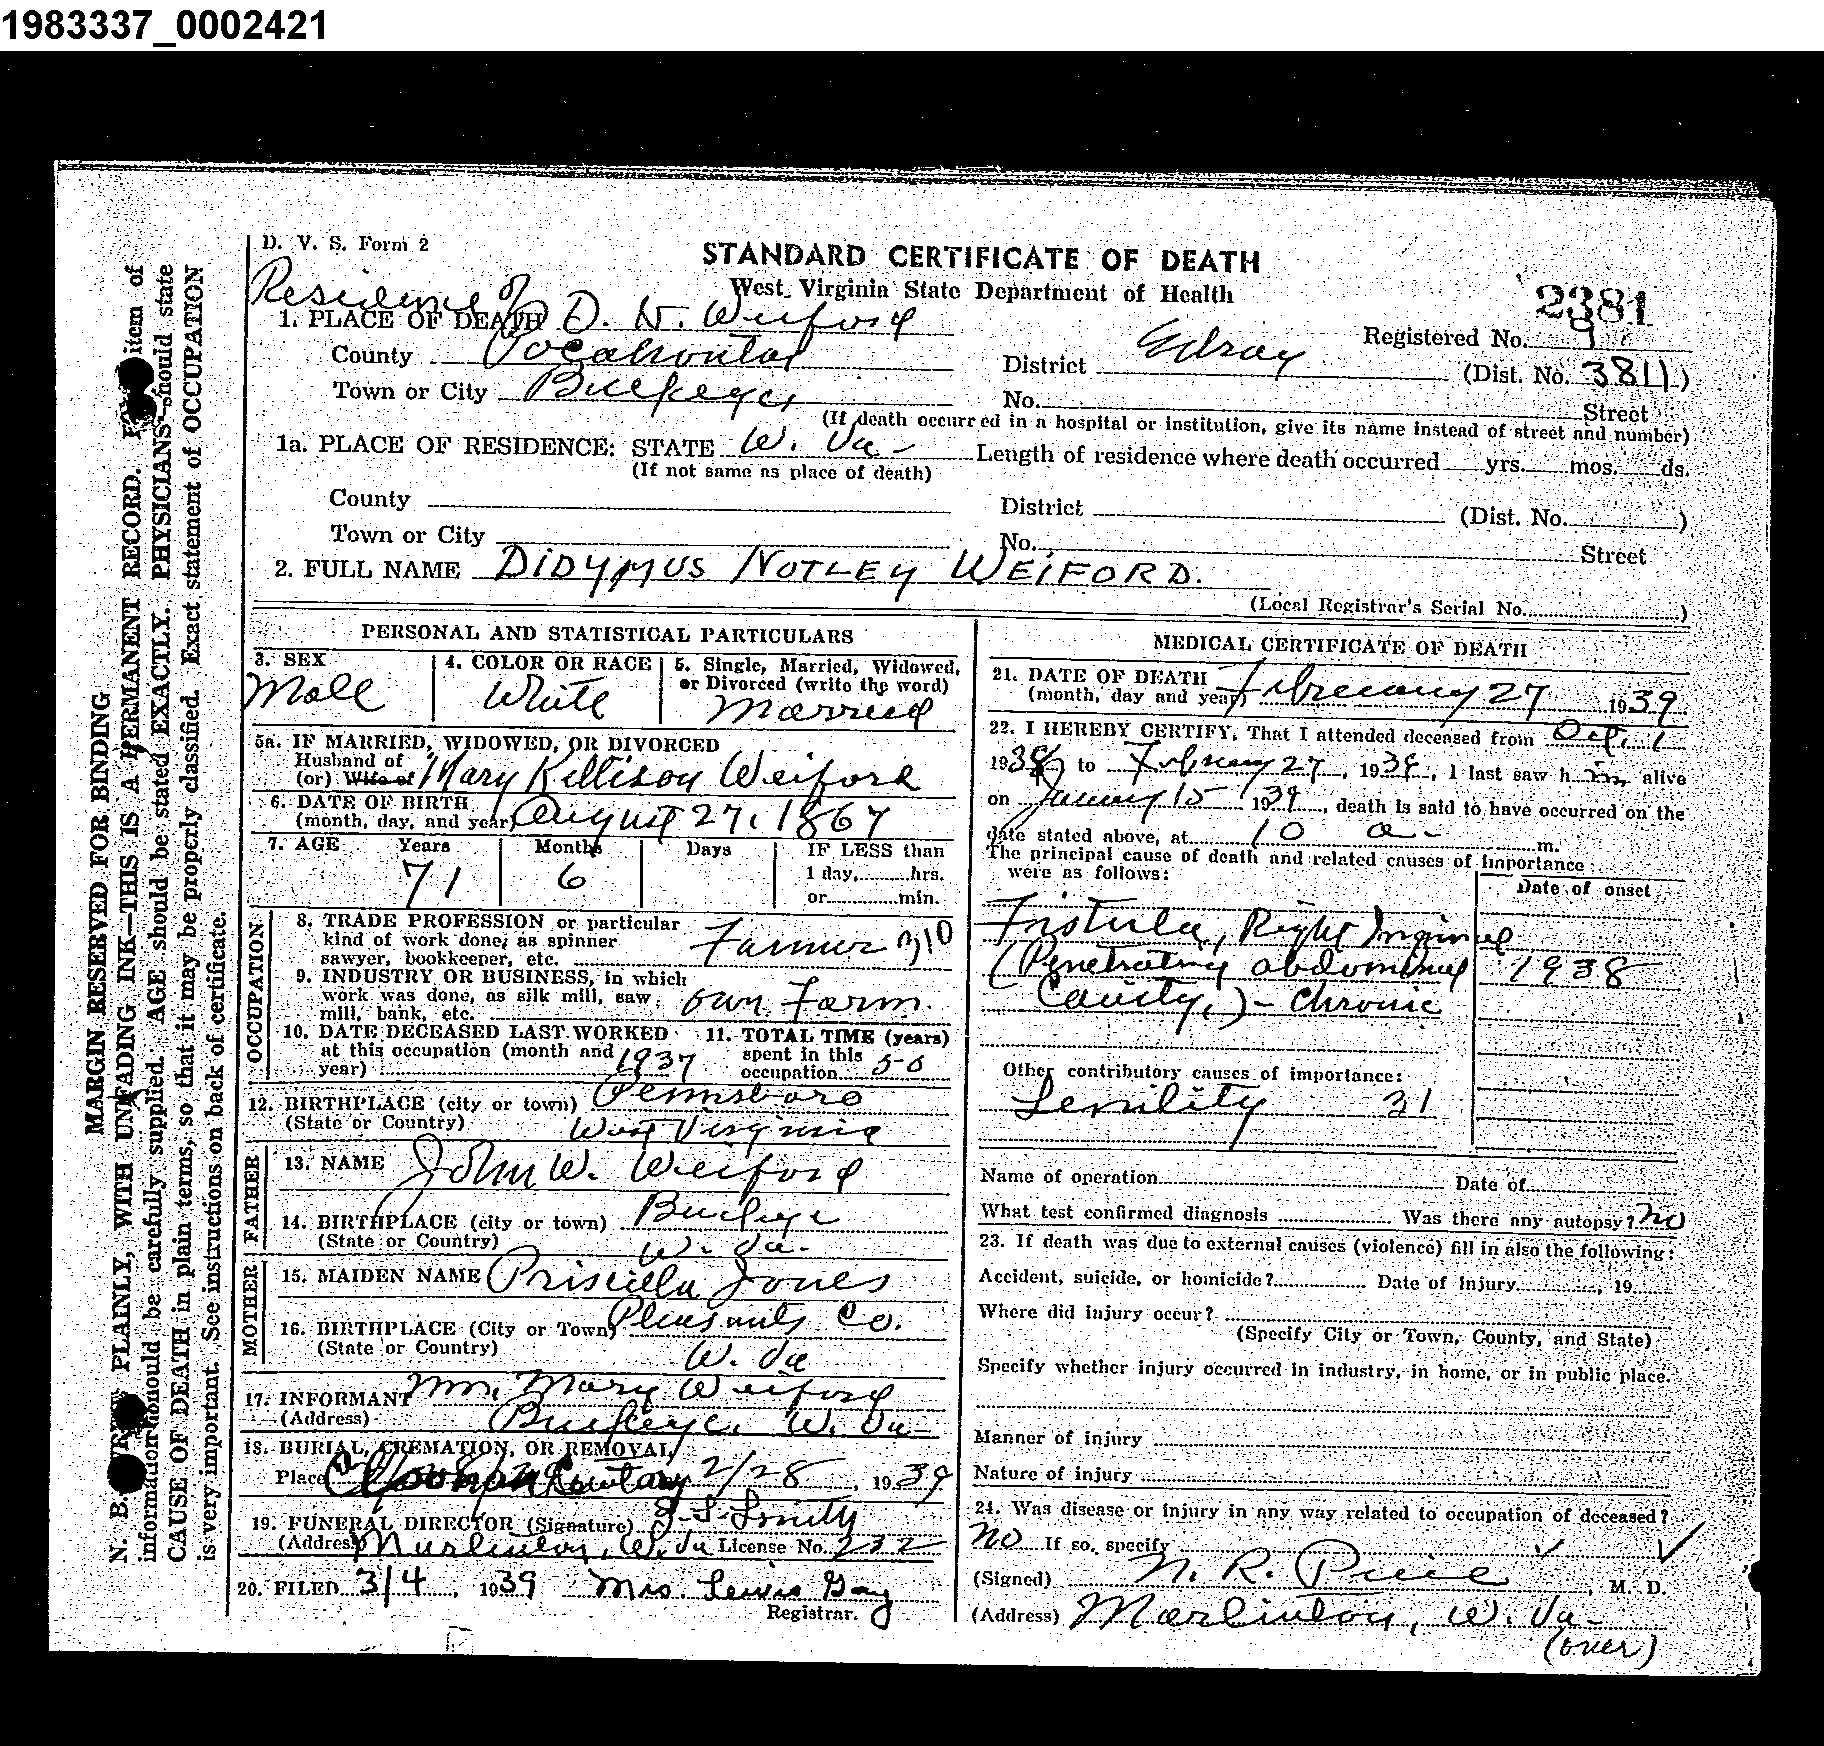 1983337_0002421
D. V. S. Form 2
STANDARD CERTIFICATE OF DEATH
West Virginia State Department of Health
2381
Residence of D. N. Weiford
1. PLACE OF DEATH
Registered No. 9
County Pocahontas
District Edray (Dist. No. 3811)
Town or City Buckeye
No. Street
(If death occurred in a hospital or institution, give its name instead of street and number)
1a. PLACE OF RESIDENCE: STATE W. Va - Length of residence where death occurred yrs. mos. ds.
(If not same as place of death)
County
District (Dist. No. )
Town or City
No. Street
2. FULL NAME DIDYMUS NOTLEY WEIFORD.
(Local Registrar's Serial No. )
PERSONAL AND STATISTICAL PARTICULARS
3. SEX Male
4. COLOR OR RACE White
5. Single, Married, Widowed, or Divorced (write the word) Married
5a. IF MARRIED, WIDOWED, OR DIVORCED
Husband of
(or) Wife of Mary Kellison Weiford
6. DATE OF BIRTH
(month, day, and year) August 27, 1867
7. AGE Years Months Days IF LESS than
71 6 1 day, hrs.
or min.
OCCUPATION
8. TRADE PROFESSION or particular
kind of work done, as spinner
sawyer, bookkeeper, etc. Farmer 310
9. INDUSTRY OR BUSINESS, in which
work was done, as silk mill, saw
mill, bank, etc. own Farm.
10. DATE DECEASED LAST WORKED
at this occupation (month and
year) 1937
11. TOTAL TIME (years)
spent in this
occupation 50
12. BIRTHPLACE (city or town) Pennsboro
(State or Country) West Virginia
FATHER
13. NAME John W. Weiford
14. BIRTHPLACE (city or town) Buckeye
(State or Country) W. Va.
MOTHER
15. MAIDEN NAME Priscilla Jones
16. BIRTHPLACE (City or Town) Pleasants Co.
(State or Country) W. Va
17. INFORMANT Mrs. Mary Weiford
(Address) Buckeye, W. Va-
18. BURIAL, CREMATION, OR REMOVAL
Place Cemetary 2/28, 1939
19. FUNERAL DIRECTOR (Signature) S. S. Smith
(Address) Marlinton, W. Va License No. 232
20. FILED 3/4, 1939 Mrs. Lewis Gay
Registrar.
MEDICAL CERTIFICATE OF DEATH
21. DATE OF DEATH
(month, day and year) February 27 1939
22. I HEREBY CERTIFY, That I attended deceased from Oct. 1
1938 to February 27, 1939, I last saw him alive
on January 15 1939, death is said to have occurred on the
date stated above, at 10 a- m.
The principal cause of death and related causes of importance
were as follows:
Date of onset
Fistula, Right Inguinal
(Penetrating abdominal 1938
Cavity,) - Chronic
Other contributory causes of importance:
Senility 31
Name of operation Date of
What test confirmed diagnosis Was there any autopsy? No
23. If death was due to external causes (violence) fill in also the following:
Accident, suicide, or homicide? Date of injury , 19
Where did injury occur?
(Specify City or Town, County, and State)
Specify whether injury occurred in industry, in home, or in public place.
Manner of injury
Nature of injury
24. Was disease or injury in any way related to occupation of deceased?
No If so, specify
(Signed) N. R. Price, M. D.
(Address) Marlinton, W. Va-
(over)
MARGIN RESERVED FOR BINDING
N. B. PLAINLY, WITH UNFADING INK—THIS IS A PERMANENT RECORD. item of
information should be carefully supplied. AGE should be stated EXACTLY. PHYSICIANS should state
CAUSE OF DEATH in plain terms, so that it may be properly classified. Exact statement of OCCUPATION
is very important. See instructions on back of certificate.